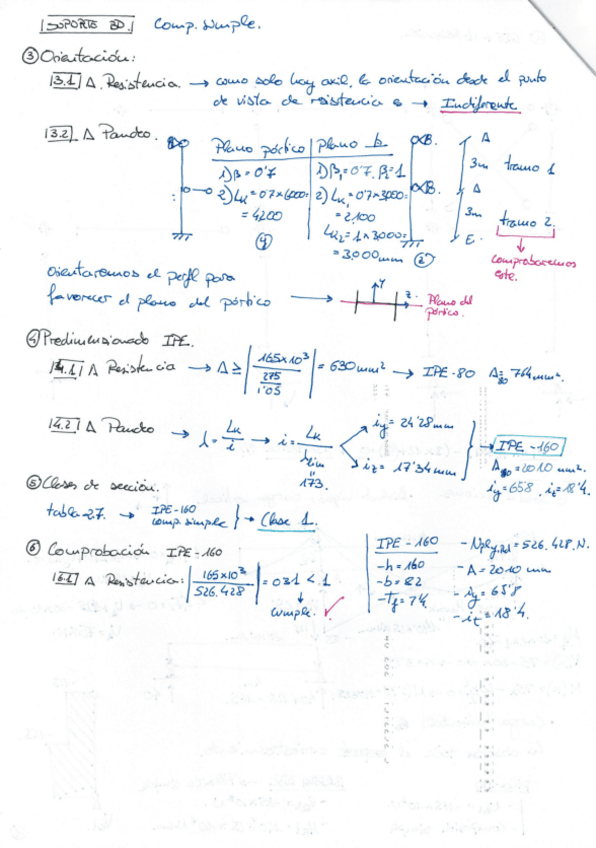 SOPORTE BD. Comp. simple.
③ Orientación:
3.1 A Resistencia. → como solo hay axil, la orientación desde el punto
de vista de resistencia es → Indiferente
3.2 A Pandeo.
Plano pórtico | Plano b
1) β = 0'7 | 1) β₁ = 0'7. β₂ = 1
2) Lk = 0'7 x 6000 = | 2) Lk₁ = 0'7 x 3000 =
= 4200 | = 2.100
Lk₂ = 1 x 3.000 =
= 3.000 mm
y z
B. A
3m tramo 1
B. A
3m tramo 2.
E.
comprobaremos
este.
Orientaremos el perfil para
favorecer el plano del pórtico → y z. Plano del
pórtico.
④ Predimensionado IPE.
4.1 A Resistencia → A ≥ | 165x10³ / 275/1'05 | = 630 mm² → IPE-80 A80 = 764 mm².
4.2 A Pandeo → λ = Lk/i → i = Lk/λlim
173.
iy = 24'28 mm
iz = 17'34 mm
→ IPE-160
= 2010 mm².
iy = 658. iz = 18'4.
⑤ Clases de sección.
tabla 27. → IPE-160
comp. simple } → Clase 1.
⑥ Comprobación IPE-160
6.1 A Resistencia: | 165x10³ / 526.428 | = 0'31 < 1
cumple. ✓
IPE-160
- h = 160
- b = 82
- Tf = 7'4.
- Nply,Rd = 526.428.N.
- A = 2010 mm
- iy = 65'8
- iz = 18'4.